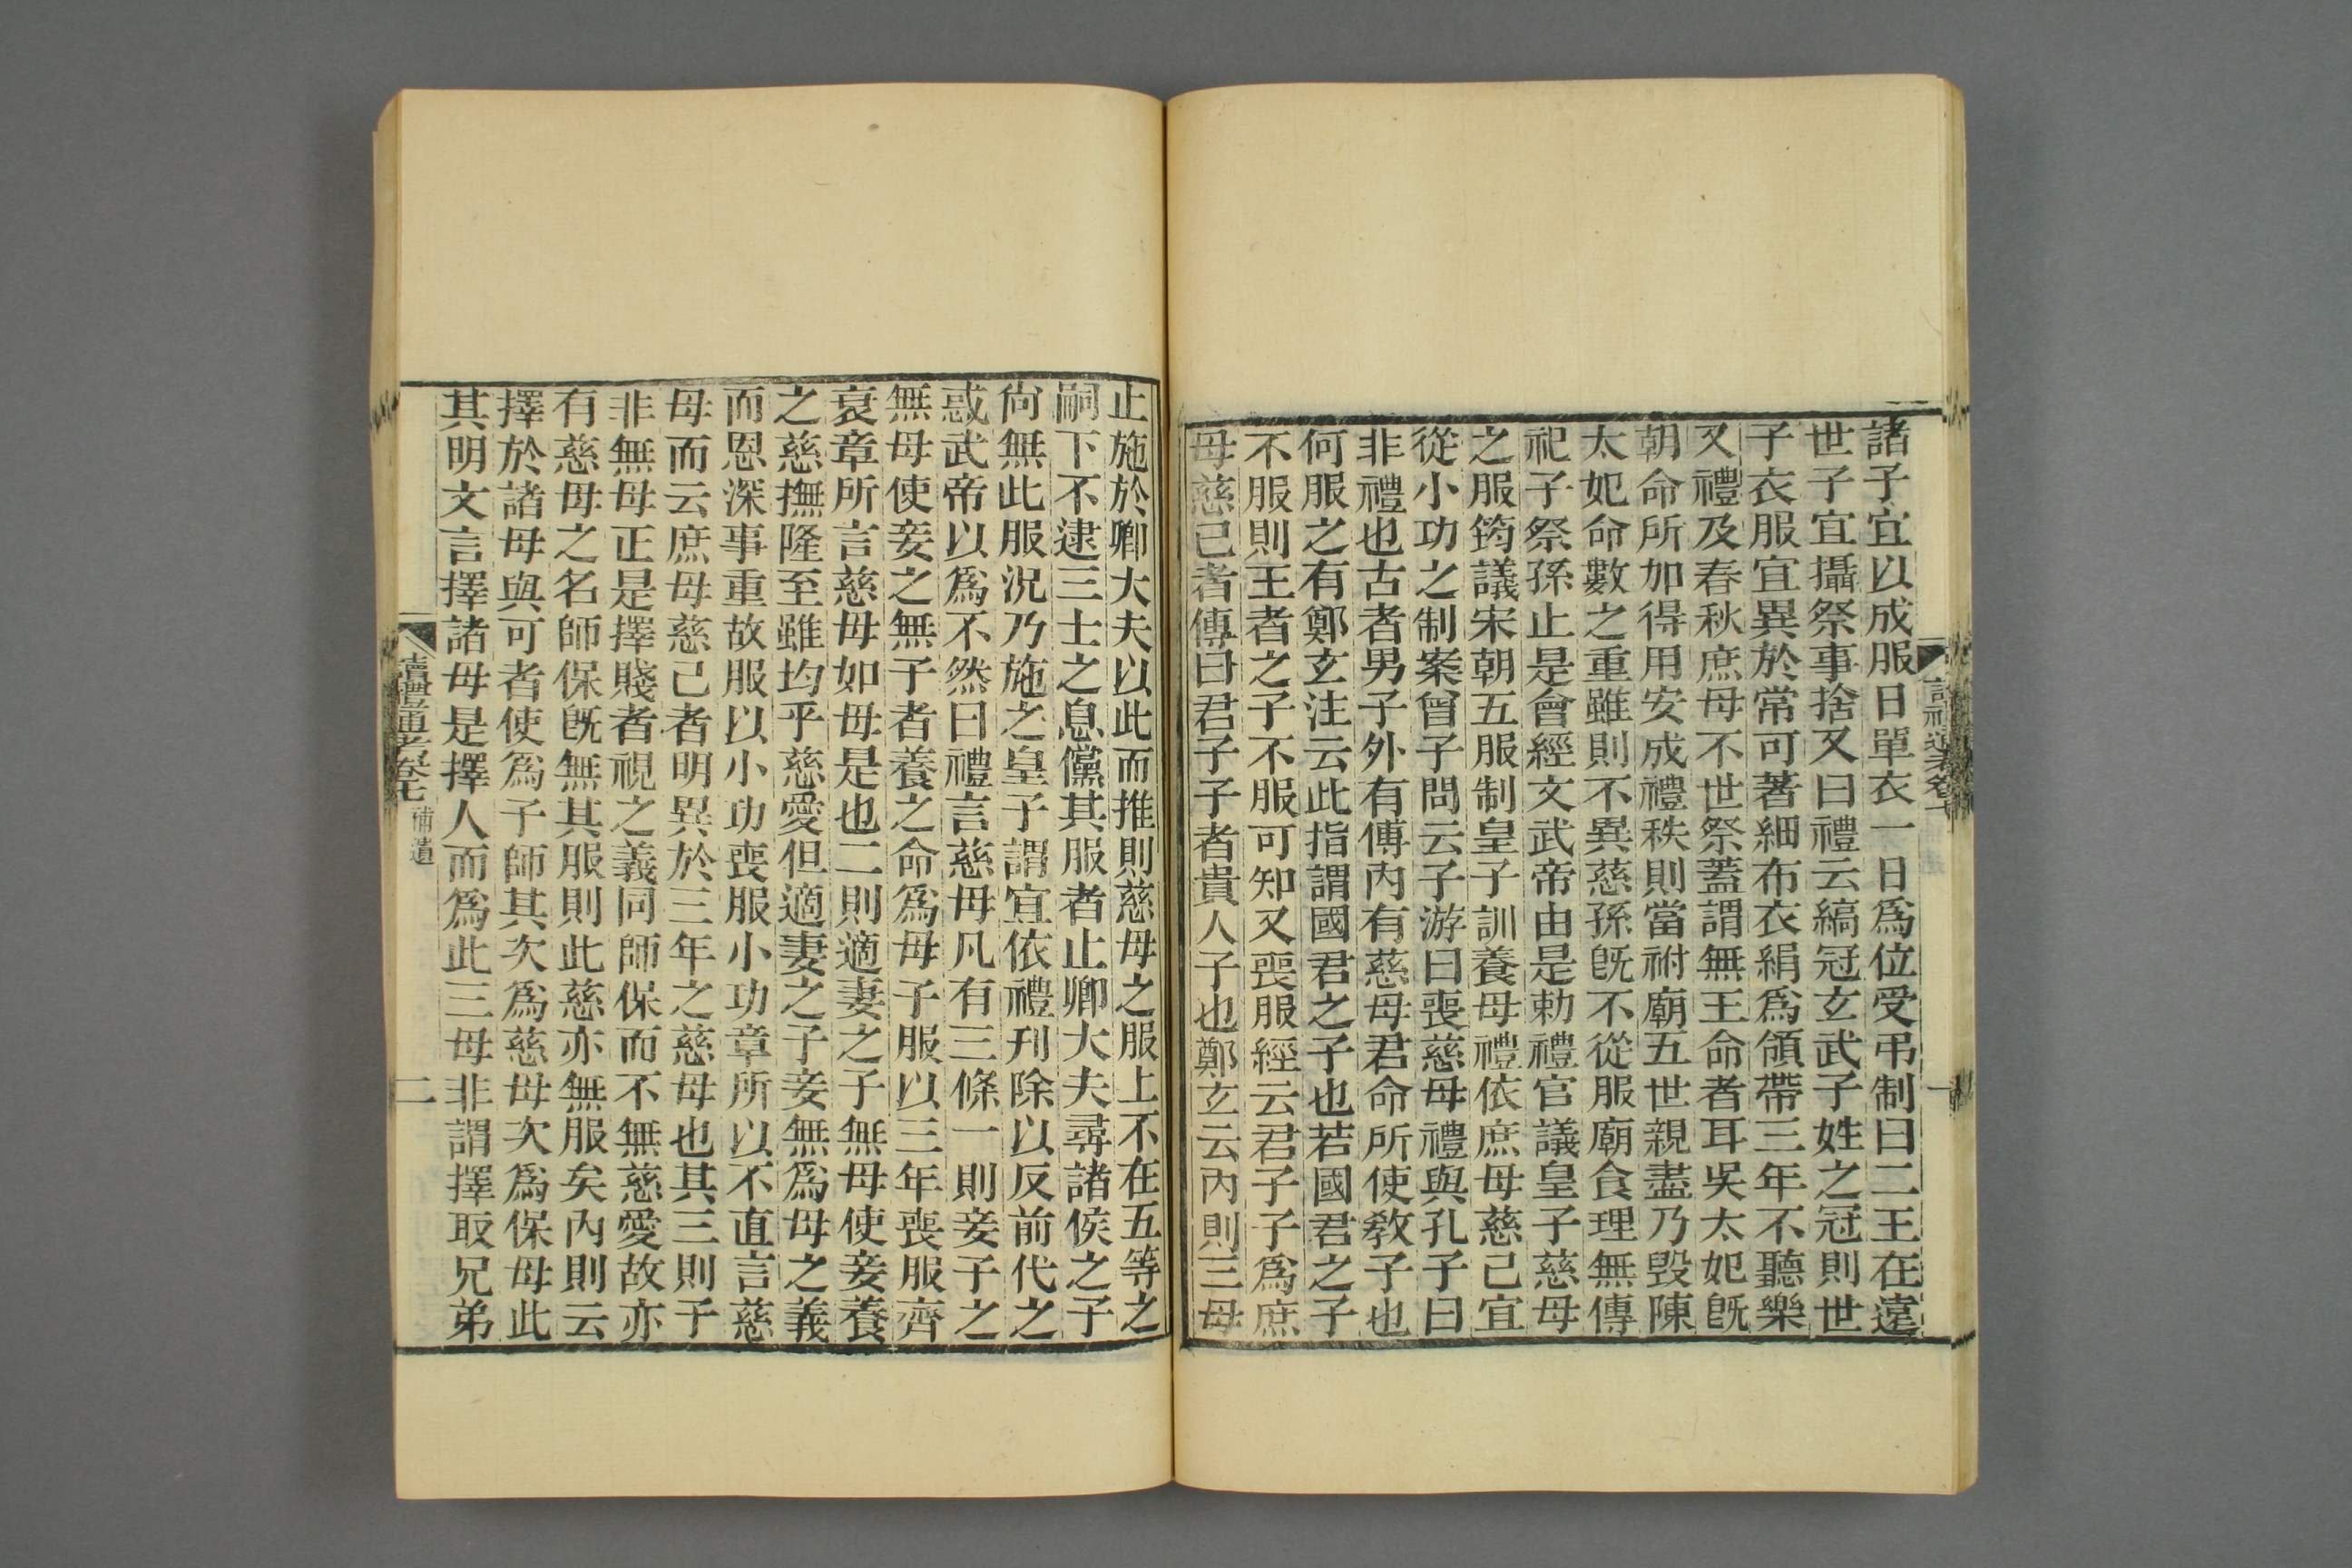 諸子宜以成服日單衣一日爲位受弔制曰二王在遠
世子宜攝祭事捨又曰禮云縞冠玄武子姓之冠則世
子衣服宜異於常可著細布衣絹爲領帶三年不聽樂
又禮及春秋庶母不世祭蓋謂無王命者耳吳太妃旣
朝命所加得用安成禮秩則當祔廟五世親盡乃毀陳
太妃命數之重雖則不異慈孫旣不從服廟食理無傳
祀子祭孫止是會經文武帝由是勅禮官議皇子慈母
之服筠議宋朝五服制皇子訓養母禮依庶母慈己宜
從小功之制案曾子問云子游曰喪慈母禮與孔子曰
非禮也古者男子外有傅內有慈母君命所使敎子也
何服之有鄭玄注云此指謂國君之子也若國君之子
不服則王者之子不服可知又喪服經云君子子爲庶
母慈己者傳曰君子子者貴人子也鄭玄云內則三母
止施於卿大夫以此而推則慈母之服上不在五等之
嗣下不逮三士之息儻其服者止卿大夫尋諸侯之子
尙無此服況乃施之皇子謂宜依禮刋除以反前代之
惑武帝以爲不然曰禮言慈母凡有三條一則妾子之
無母使妾之無子者養之命爲母子服以三年喪服齊
衰章所言慈母如母是也二則適妻之子無母使妾養
之慈撫隆至雖均乎慈愛但適妻之子妾無爲母之義
而恩深事重故服以小功喪服小功章所以不直言慈
母而云庶母慈己者明異於三年之慈母也其三則子
非無母正是擇賤者視之義同師保而不無慈愛故亦
有慈母之名師保旣無其服則此慈亦無服矣內則云
擇於諸母與可者使爲子師其次爲慈母次爲保母此
其明文言擇諸母是擇人而爲此三母非謂擇取兄弟
讀禮通考卷七 補遺 二